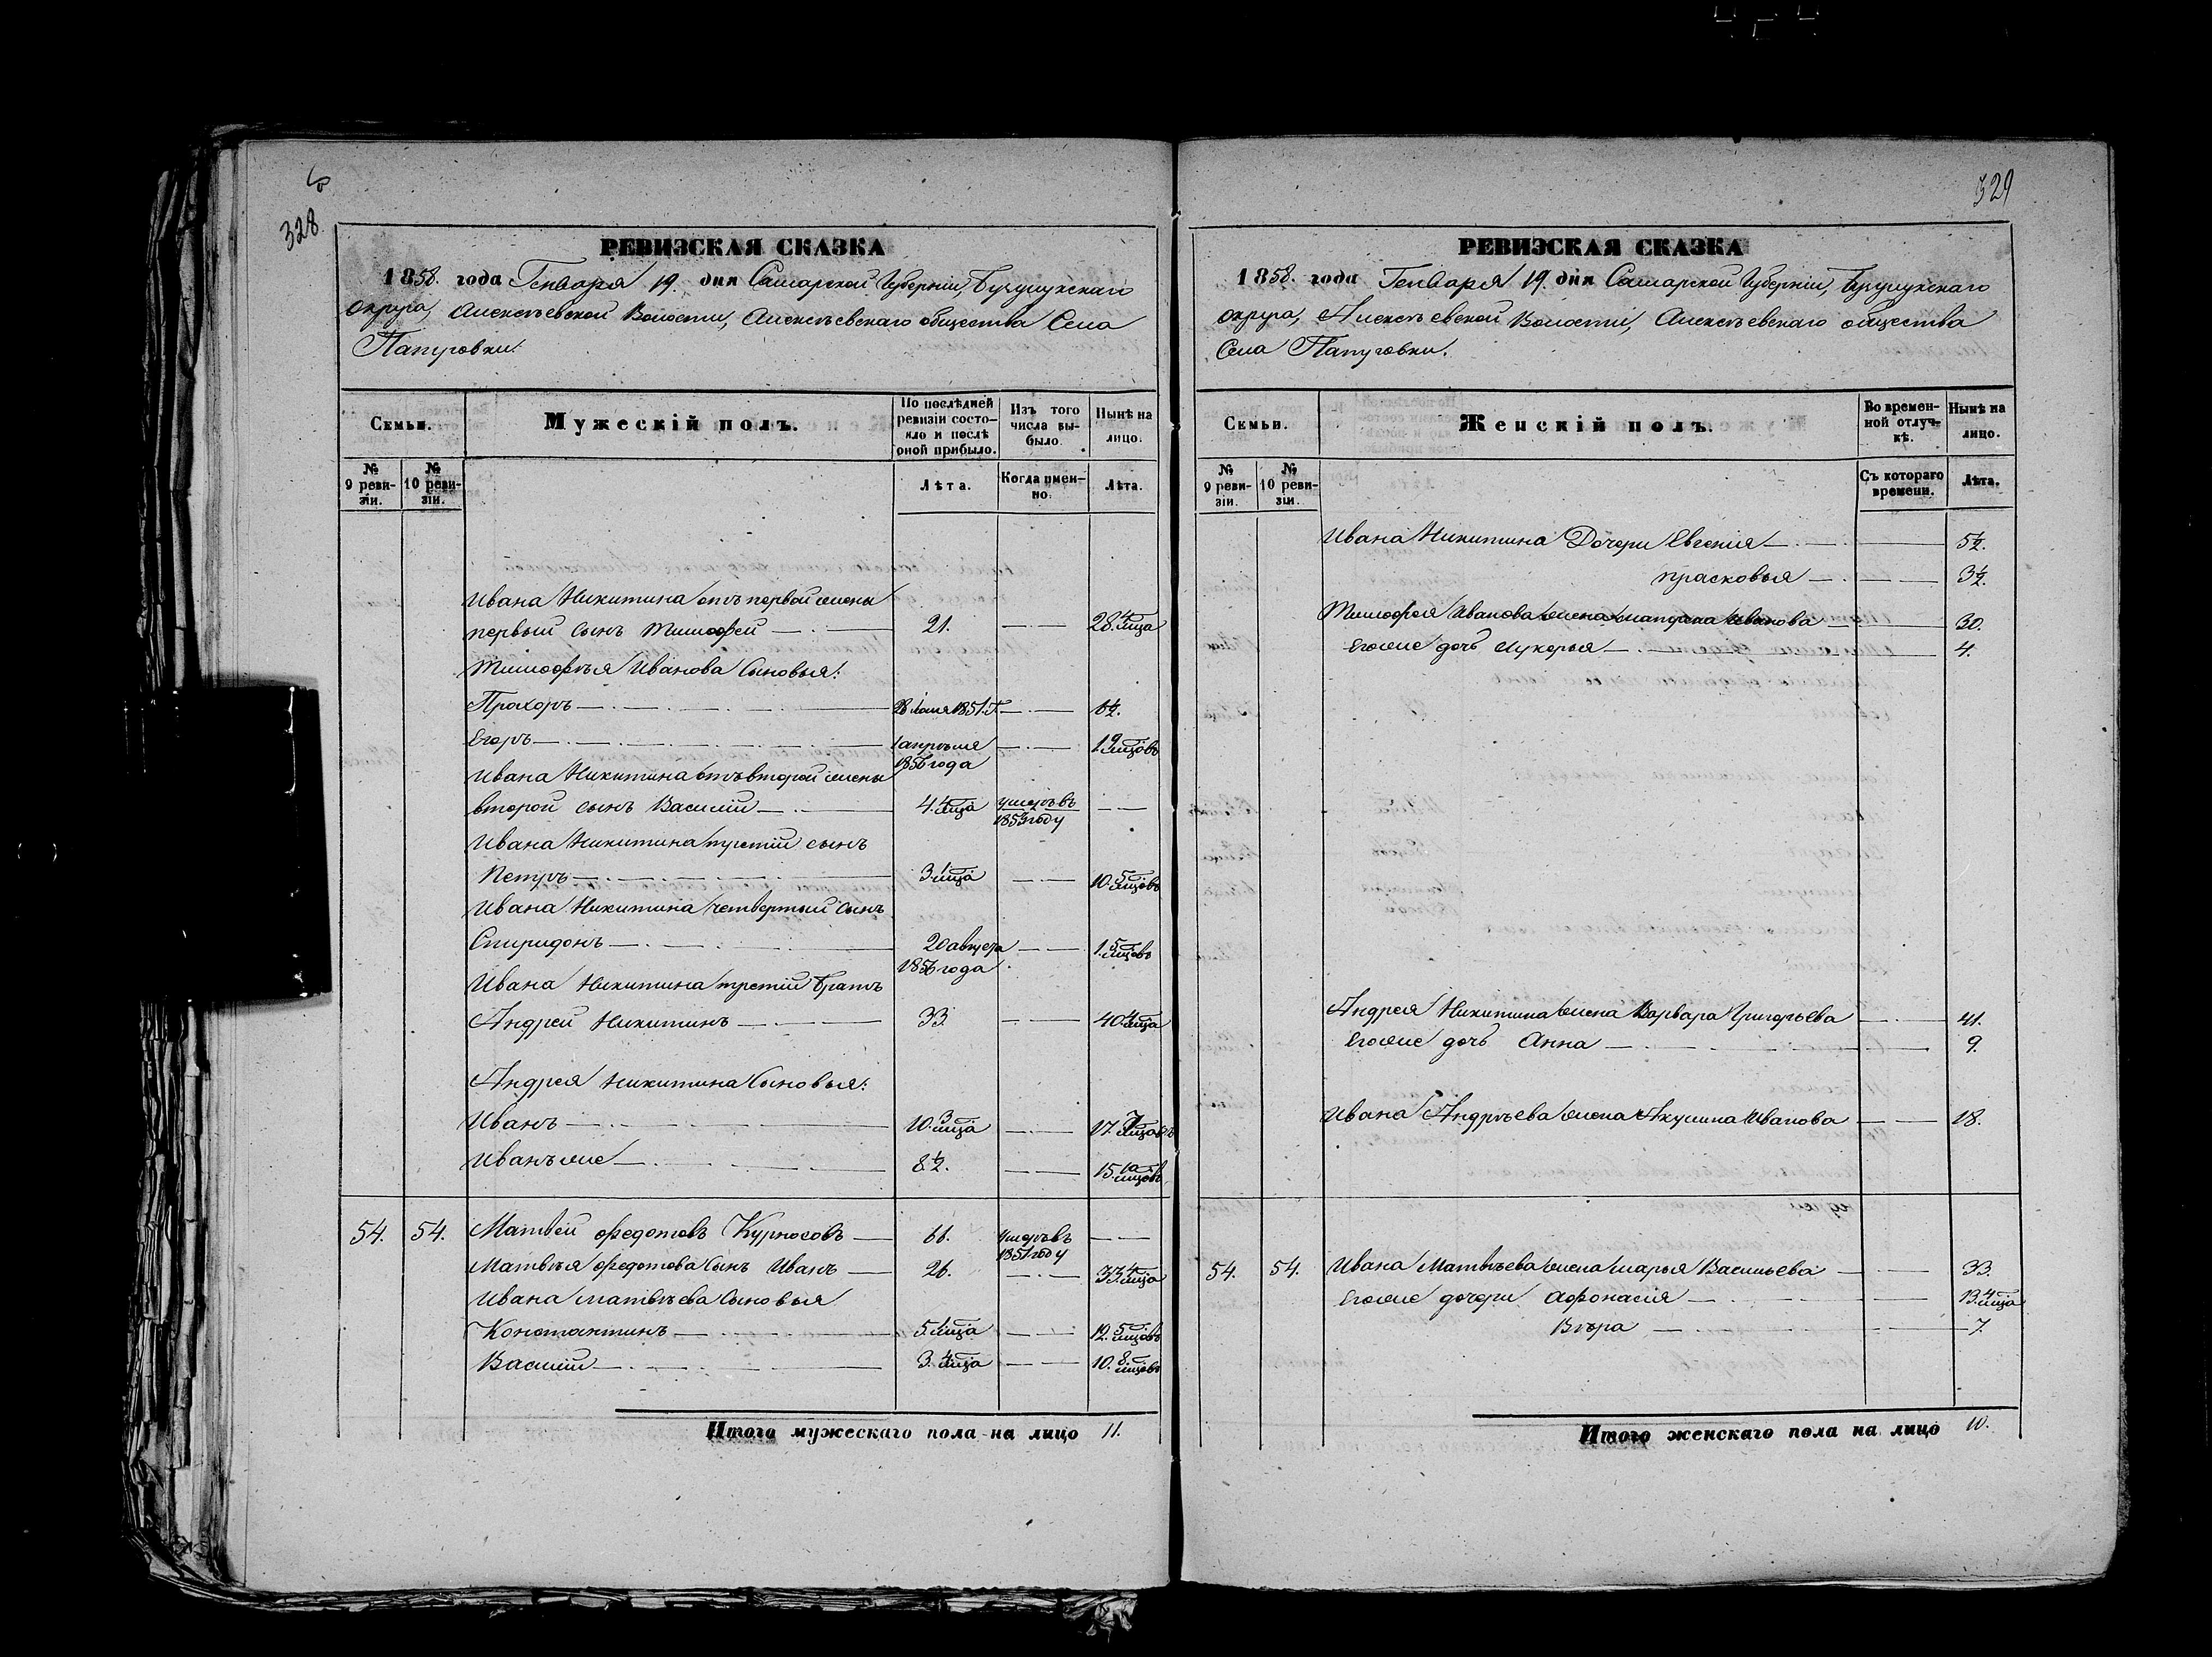 328
РЕВИЗСКАЯ СКАЗКА
1858. года Генваря 19. дня Самарской Губерніи, Бузулукскаго
округа, Алексѣевской Волости, Алексѣевскаго общества Села
Папузовки.
Семьи.
Мужескій полъ.
По послѣдней ревизіи состояло и послѣ оной прибыло.
Изъ того числа выбыло.
Нынѣ на лицо.
№ 9 ревизіи.
№ 10 ревизіи.
Лѣта.
Когда именно.
Лѣта.
Ивана Никитина отъ первой жены
первый сынъ Тимофей 21. 28. 4 мца
Тимофѣя Иванова Сыновья:
Прохоръ 28 Іюля 1851. Г. 6½.
Егоръ 1 апрѣля 1. 9 мцовъ
1856 года
Ивана Никитина отъ второй жены
второй сынъ Василій 4. 4 мца умеръ въ
Ивана Никитина третій сынъ
Петръ 3. 10. 5 мцовъ
Ивана Никитина четвертый Сынъ
Спиридонъ 20 августа 1. 5 мцовъ
1856 года
Ивана Никитина третій братъ
Андрей Никитинъ 33. 40. 4 мца
Андрея Никитина Сыновья:
Иванъ 10. 3 мца 17. 7 мцовъ
Иванъ же 8½. 15. 10 мцовъ
54. 54. Матвей Федотовъ Курносовъ 66. умеръ въ
1851 году
Матвѣя Федотова Сынъ Иванъ 26. 33. 4 мца
Ивана Матвѣева Сыновья
Константинъ 5. 12. 5 мцовъ
Василій 3. 4 мца 10. 8 мцовъ
Итого мужескаго пола на лицо 11.
329
РЕВИЗСКАЯ СКАЗКА
1858. года Генваря 19. дня Самарской Губерніи, Бузулукскаго
округа, Алексѣевской Волости, Алексѣевскаго общества
Села Папузовки.
Семьи.
Женскій полъ.
Во временной отлучкѣ.
Нынѣ на лицо.
№ 9 ревизіи.
№ 10 ревизіи.
Съ котораго времени.
Лѣта.
Ивана Никитина Дочери Евгения 5½.
Прасковья 3½.
Тимофея Иванова жена Иванова 30.
Егоже дочь Лукерья 4.
Андрея Никитина жена Варвара Григорьева 41.
Егоже дочь Анна 9.
Ивана Андрѣева жена Акулина Иванова 18.
54. 54. Ивана Матвѣева жена Марья Васильева 33.
Егоже дочери Афонасія 13. 4 мца
Вѣра 7.
Итого женскаго пола на лицо 10.